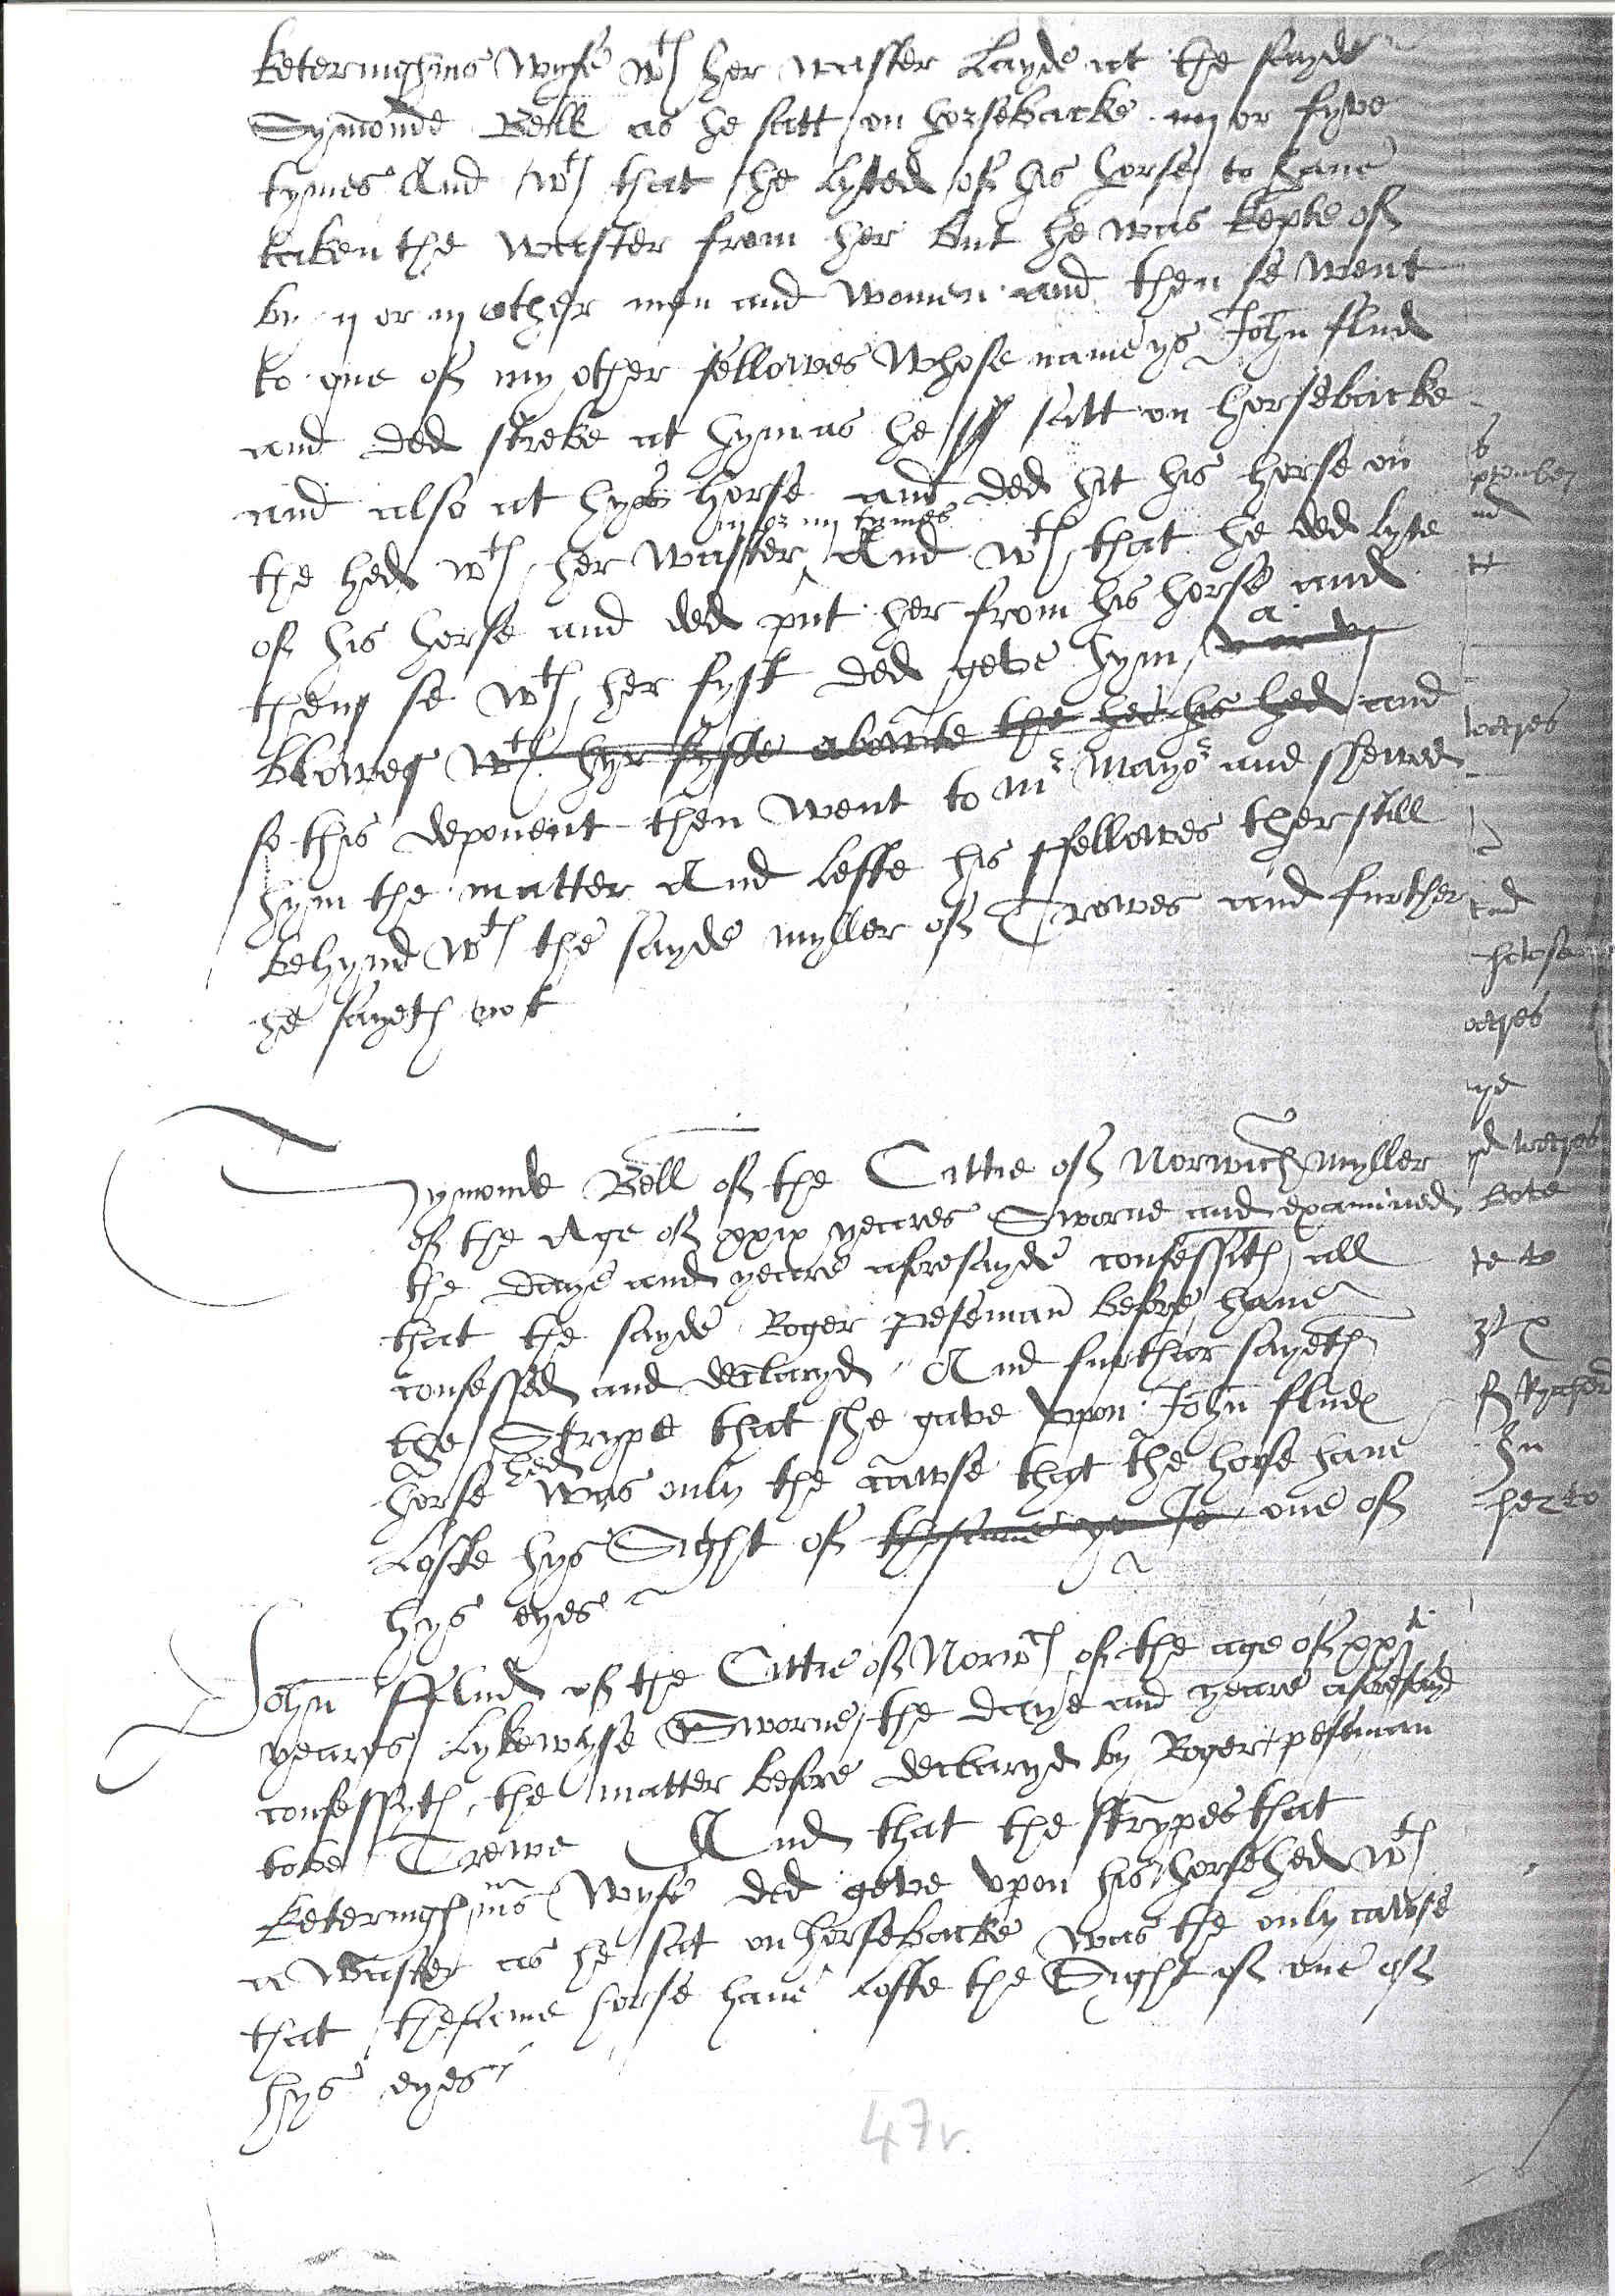 keteringhams wyfe wth her waster Layde at the sayde
Symonde Bell as he satt on horsebacke iiij or fyve
tymes And wth that he lyted of his horse to have
taken the waster from her but he was kepte of
by ij or iij other men and women and then se went
to one of my other fellowes whose name ys John flud
and ded streke at hym as he satt on horsebacke
and also at hys horse and ded hit his horse on
iij or iiij tymes
the hed wth her waster ^ And wth that he ded lyte
of his horse and ded put her from his horse and
then se wth her fyst ded geve hym a v or vj
blowes wth hyr fyste abowte the hed his hed and
so this deponent then went to Mr Mayor and shewed
hym the matter And lefte his fellowes ther still
behynd wth the sayde myller of Trowes and further
he sayeth not
Symonde Bell of the Cittie of Norwich myller
of the Age of xxix yeares Sworne and examined
the daye and yeare aforesayde confessith all
that the sayde Roger peseman before have
confessed and declaryd And further sayeth
the Strype that she gave vpon John fludes
horse hed was only the cawse that the horse have
Loste hys Sight of the same eye Is one of
hys eyes
John fflud of the Cittie of Norwch of the age of xxti
yearys Lykewyse Sworne the daye and yeare aforesayd
confessyth the matter before declaryd by Roger peseman
to be Trewe And that the strypes that
keteringhams wyfe ded geve vpon his horse hed wth
a waster as he sat on horsebacke was the only cawse
that the same horse have loste the Sight of one of
hys eyes
47r